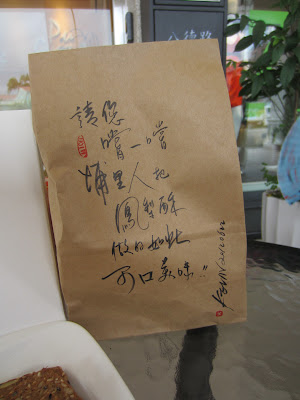 請您
嚐一嚐
埔里人把
鳳梨酥
做的如此
可口美味!!
八德路